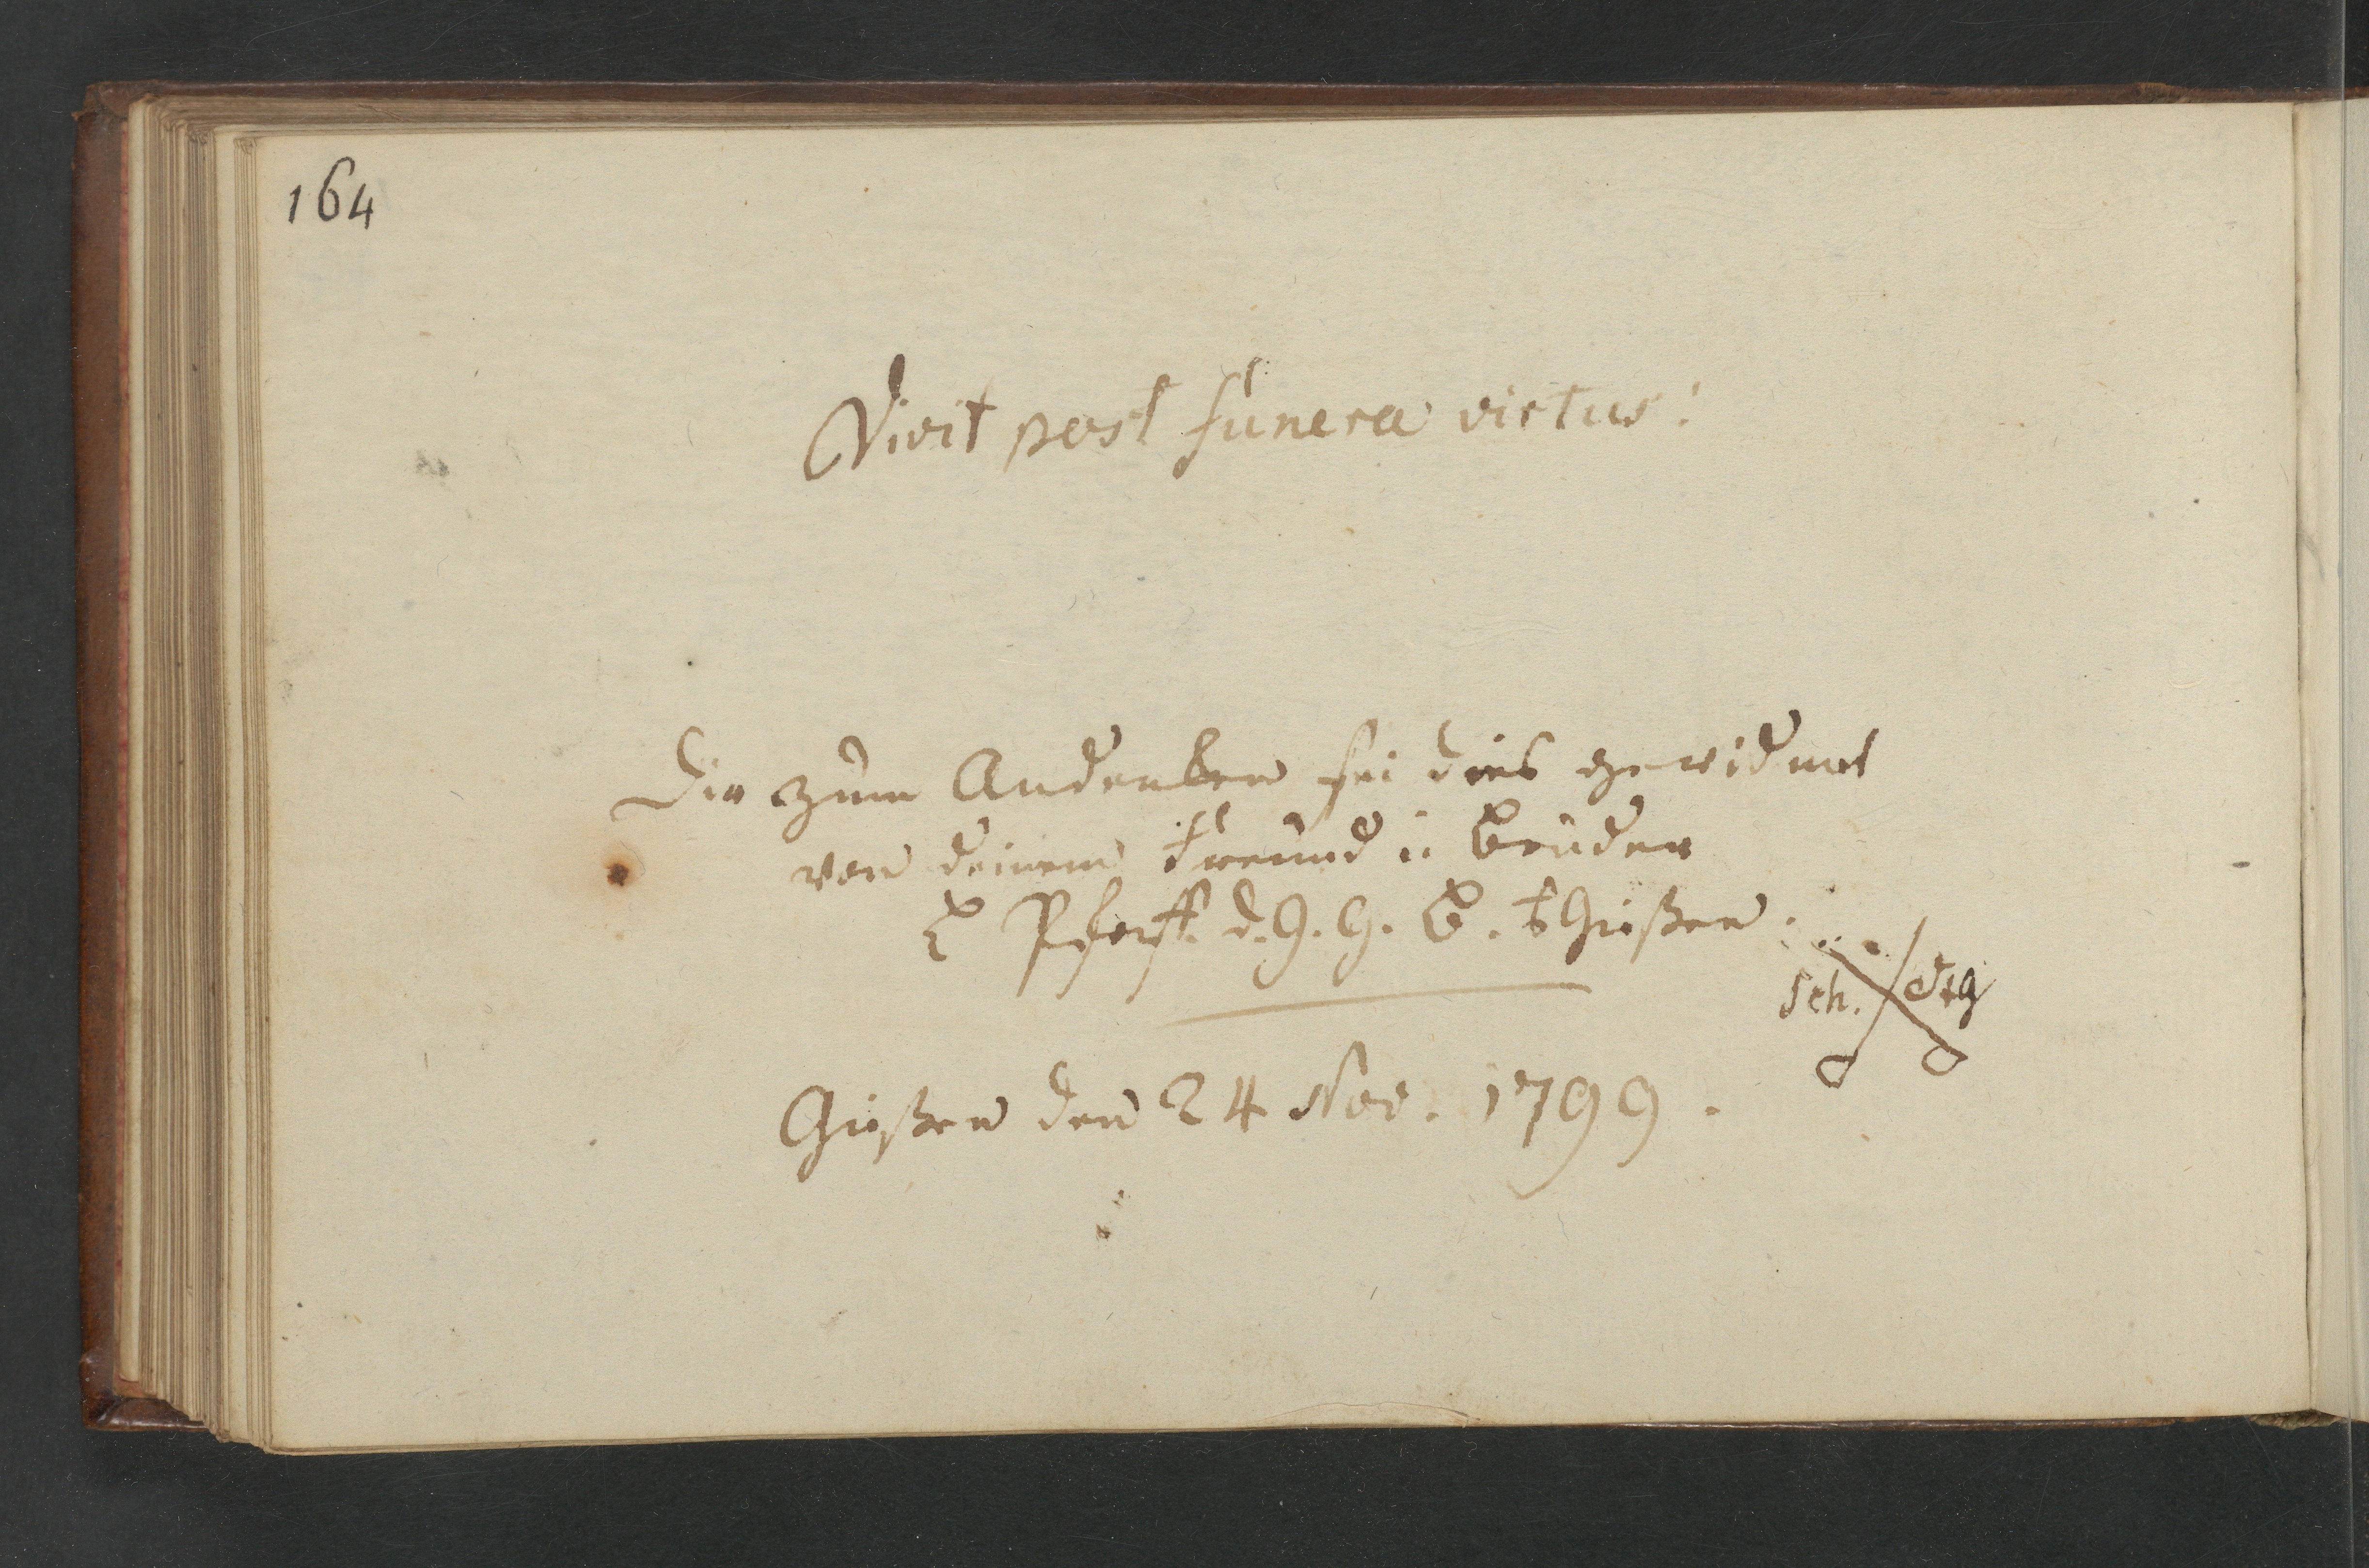 164
Vivit post funera virtus!
Dir zum Andenken sei dies gewidmet
von deinem Freund u Bruder
Pfeiff. d. G. G. B. Gießen.
Sch.
Gießen den 24 Nov. 1799.